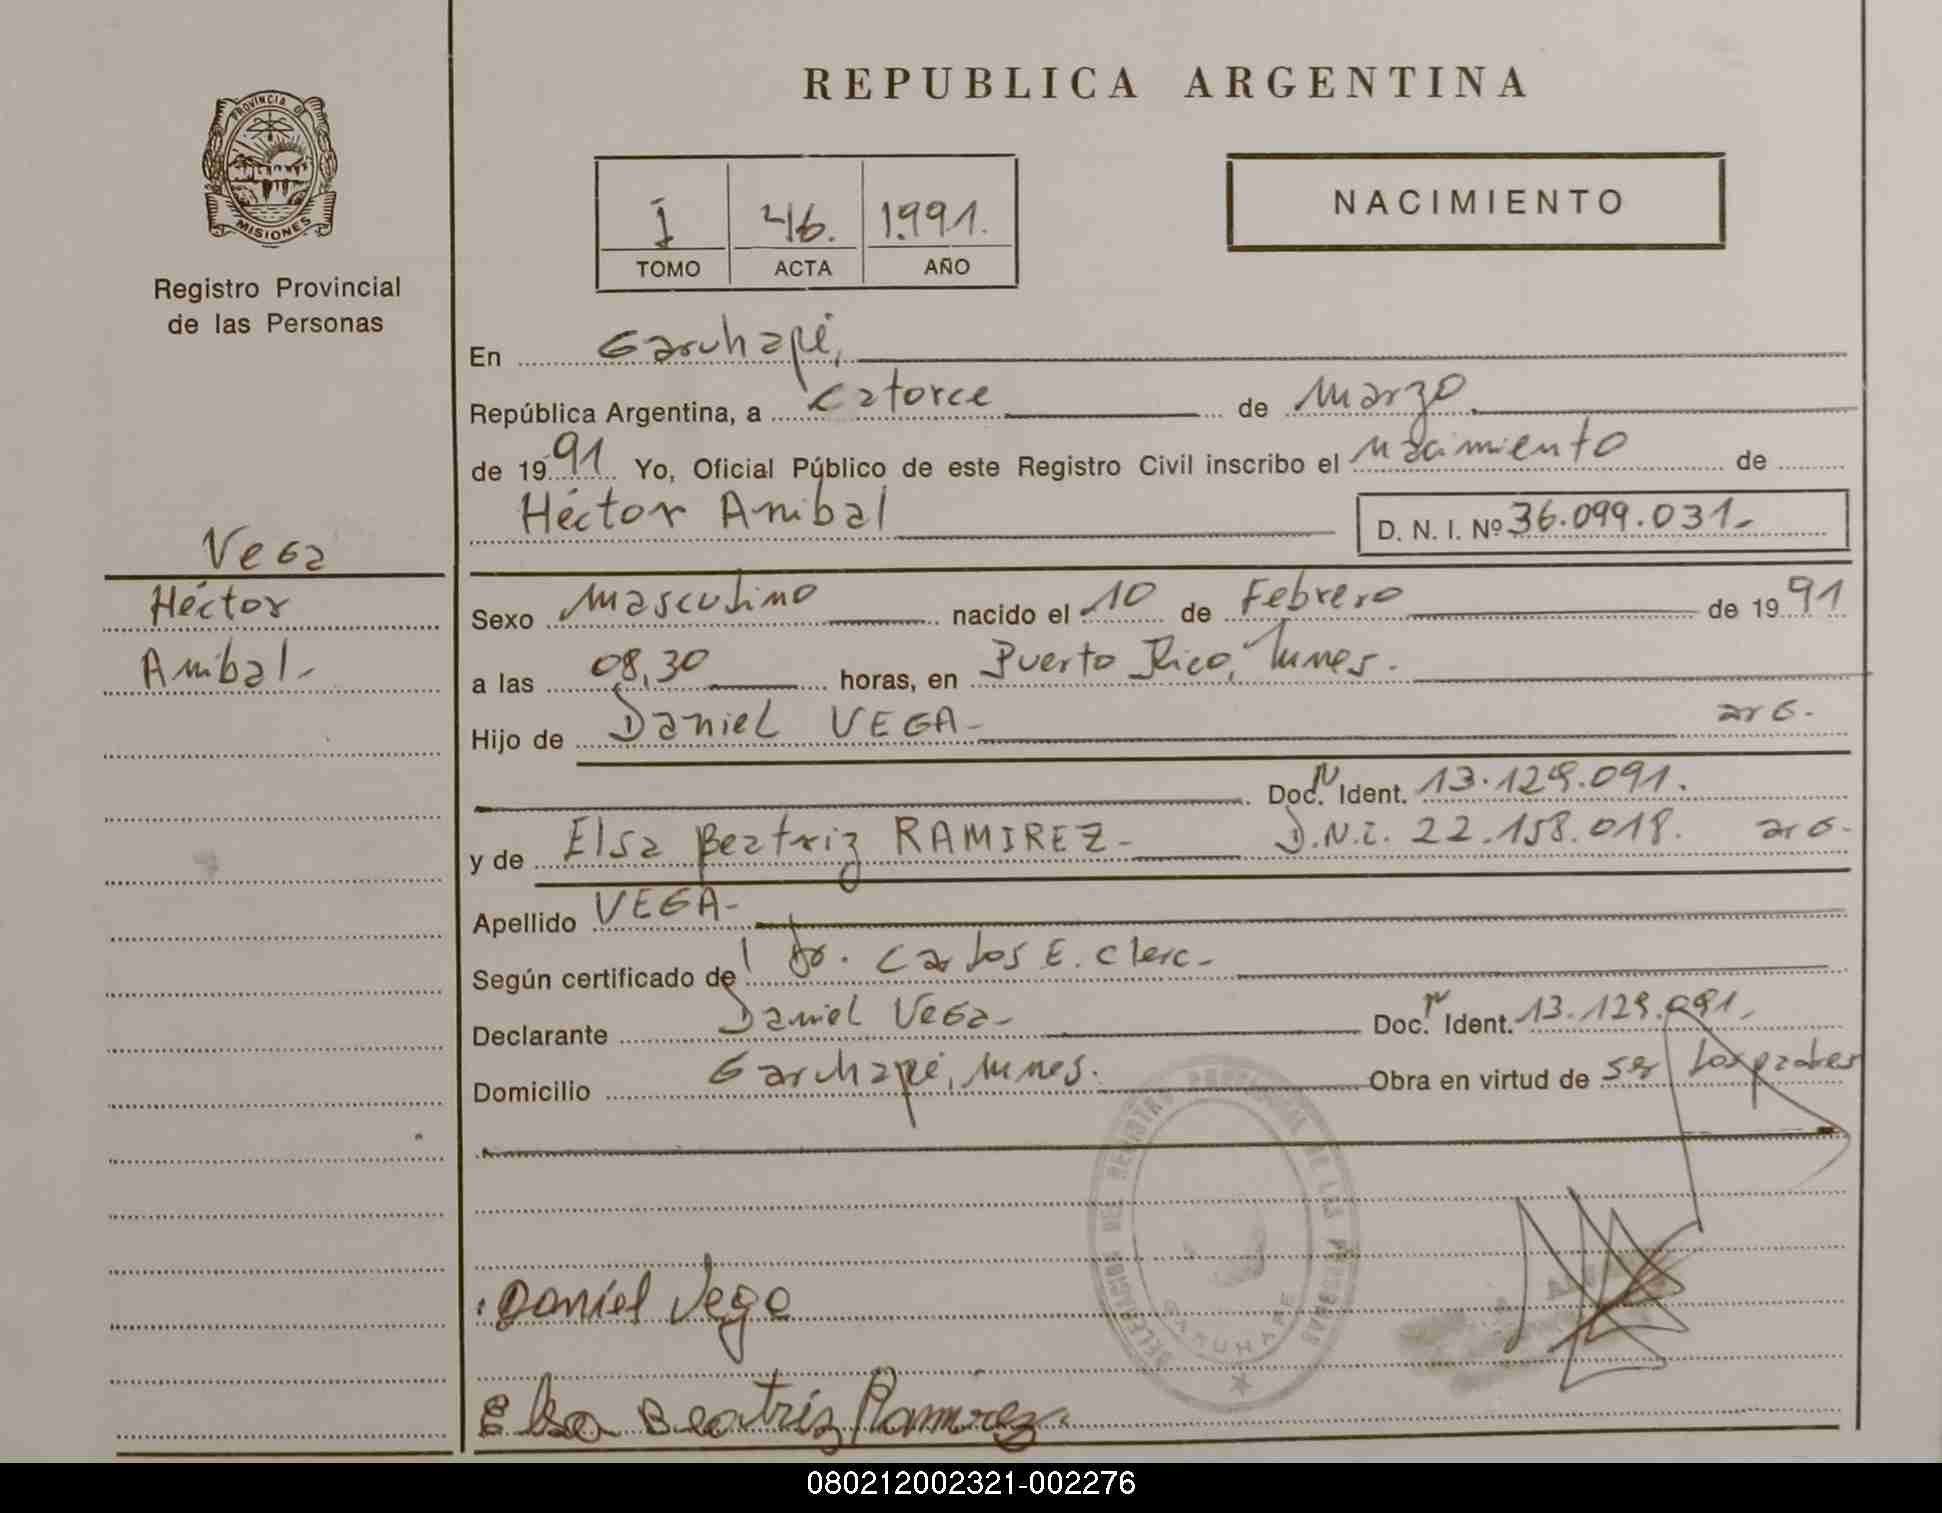 REPUBLICA ARGENTINA
PROVINCIA DE
MISIONES
Registro Provincial
de las Personas
I 46. 1.991.
TOMO ACTA AÑO
NACIMIENTO
En Garuhapé,
República Argentina, a catorce de Marzo
de 1991 Yo, Oficial Público de este Registro Civil inscribo el nacimiento de
Héctor Anibal D. N. I. Nº 36.099.031-
Vega
Héctor
Anibal-
Sexo Masculino nacido el 10 de Febrero de 1991
a las 08,30 horas, en Puerto Rico,
Hijo de Daniel VEGA- arg.
Doc. Ident. 13.129.091.
y de Elsa Beatriz RAMIREZ- D.N.I. 22.158.018. arg-
Apellido VEGA-
Según certificado del Dr. Carlos E. Clerc-
Declarante Daniel Vega- Doc. Ident. 13.129.091,
Domicilio Garuhapé, Obra en virtud de ser los padres
DELEGACION DEL REGISTRO PROVINCIAL DE LAS PERSONAS
GARUHAPE
Daniel Vega
Elsa Beatriz Ramirez
080212002321-002276